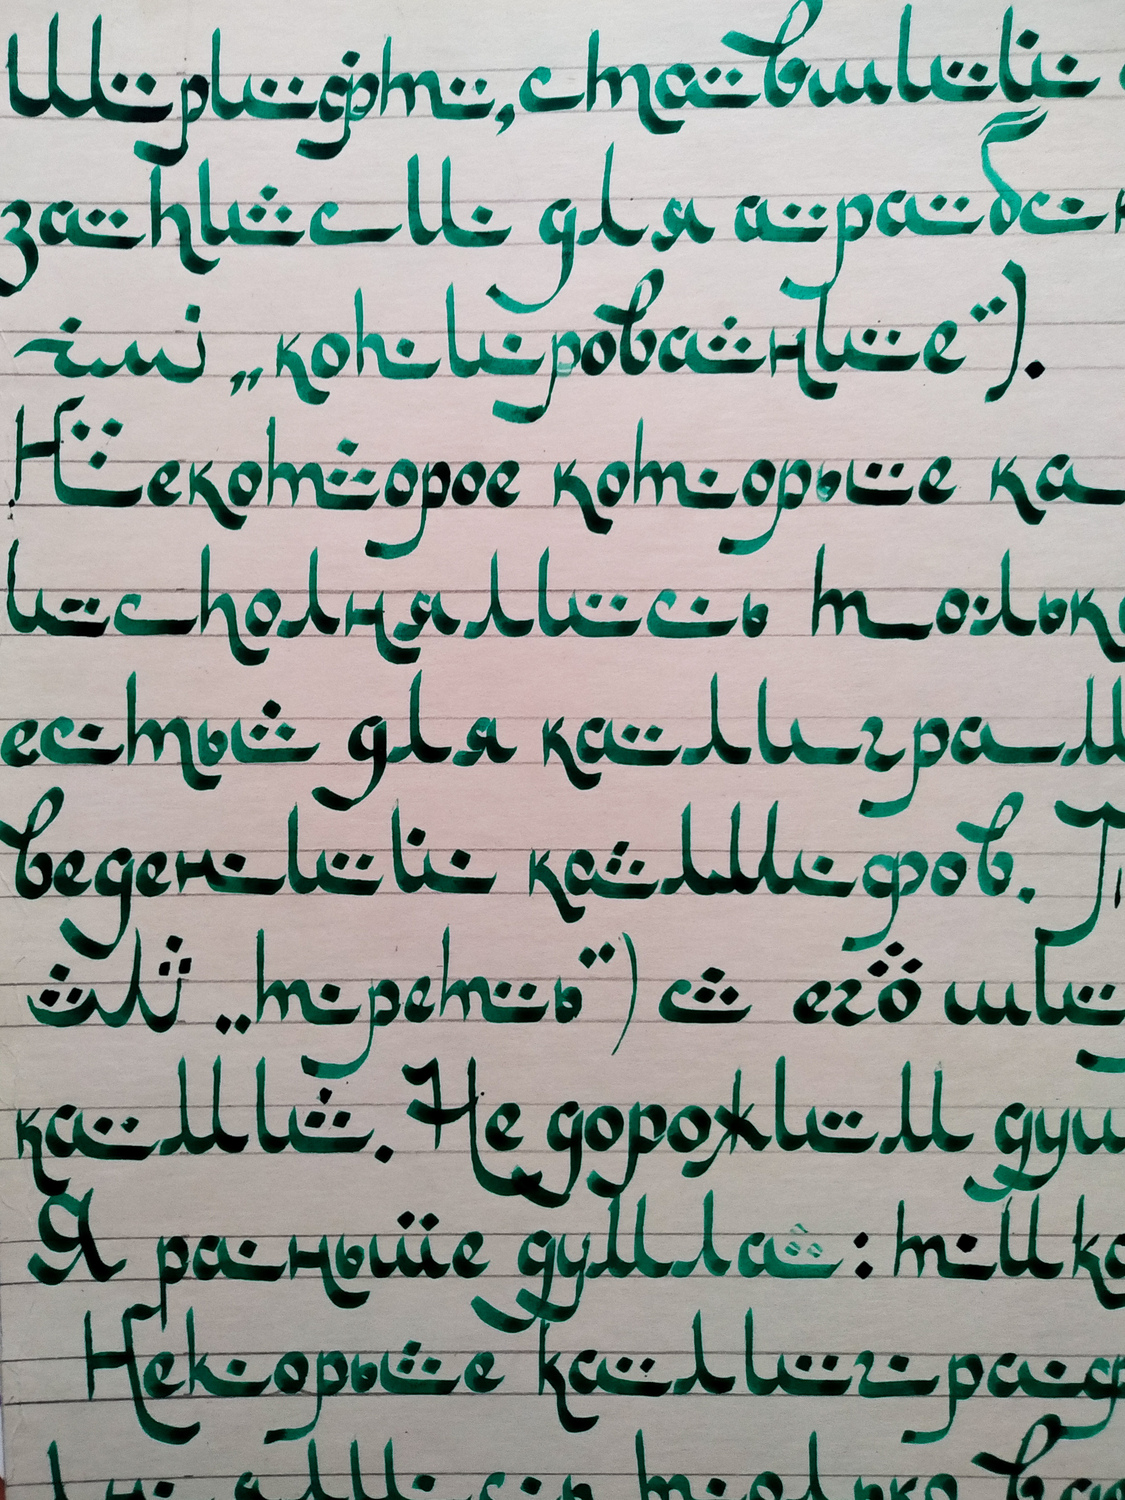 Шрифт, ставший
записи для арабск
„копирование“).
Некоторое которые ка
исполнялись только
есты для калиграм
ведений калифов. П
„треть“) с его ши
ками. Не дорожим душ
Я раньше думала: так
Некорые калиграф
только